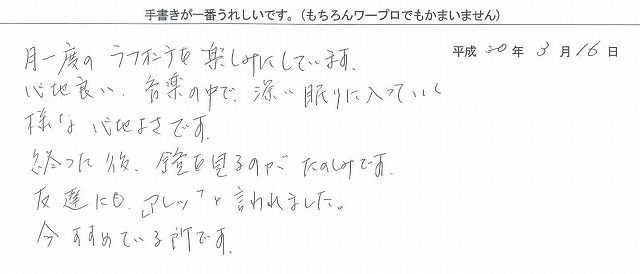 手書きが一番うれしいです。(もちろんワープロでもかまいません)
平成 20 年 3 月 16 日
月一度の ラフォンテを 楽しみにしています。
心地良い、音楽の中で、深い眠りに入っていく
様な 心地よさです。
終った後、鏡を見るのが たのしみです。
友達にも、「アレッ」と 言われました。
今 すすめている所です。